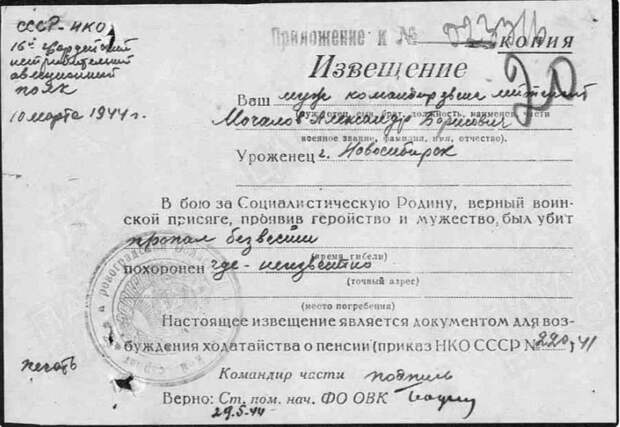 СССР-НКО
16й гвардейский
истребительный
авиационный
полк
10 марта 1944 г.
Приложение к №
КОПИЯ
20
Извещение
Ваш муж командир звена
(муж, сын, брат, должность, наименов. части
Мочалов Александр Борисович
военное звание, фамилия, имя, отчество).
Уроженец г. Новосибирск
В бою за Социалистическую Родину, верный воин-
ской присяге, проявив геройство и мужество, был убит
пропал безвести
(время гибели)
похоронен где-неизвестно
(точный адрес)
(место погребения)
Настоящее извещение является документом для воз-
буждения ходатайства о пенсии (приказ НКО СССР № 220, 41
печать
Командир части подпись
Верно: Ст. пом. нач. ФО ОВК
29.5.44